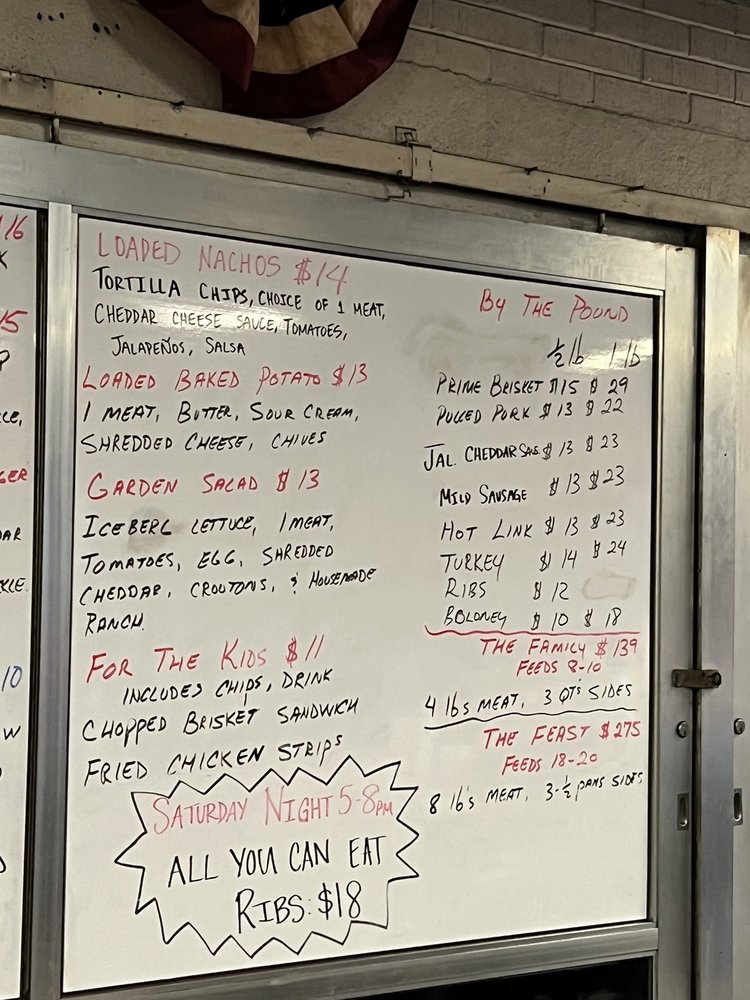 16
K
15
P
CE,
GER
AR
KLE
10
W
LOADED NACHOS $14
TORTILLA CHIPS, CHOICE OF 1 MEAT,
CHEDDAR CHEESE SAUCE, TOMATOES,
JALAPEÑOS, SALSA
LOADED BAKED POTATO $13
1 MEAT, BUTTER, SOUR CREAM,
SHREDDED CHEESE, CHIVES
GARDEN SALAD $13
ICEBERG LETTUCE, 1 MEAT,
TOMATOES, EGG, SHREDDED
CHEDDAR, CROUTONS, & HOUSEMADE
RANCH.
FOR THE KIDS $11
INCLUDES CHIPS, DRINK
CHOPPED BRISKET SANDWICH
FRIED CHICKEN STRIPS
SATURDAY NIGHT 5-8PM
ALL YOU CAN EAT
RIBS: $18
BY THE POUND
1/2 lb 1 lb
PRIME BRISKET $15 $29
PULLED PORK $13 $22
JAL. CHEDDAR SAUS $13 $23
MILD SAUSAGE $13 $23
HOT LINK $13 $23
TURKEY $14 $24
RIBS $12
BOLONEY $10 $18
THE FAMILY $139
FEEDS 8-10
4 lbs MEAT, 3 QT's SIDES
THE FEAST $275
FEEDS 18-20
8 lb's MEAT, 3-1/2 PANS SIDES